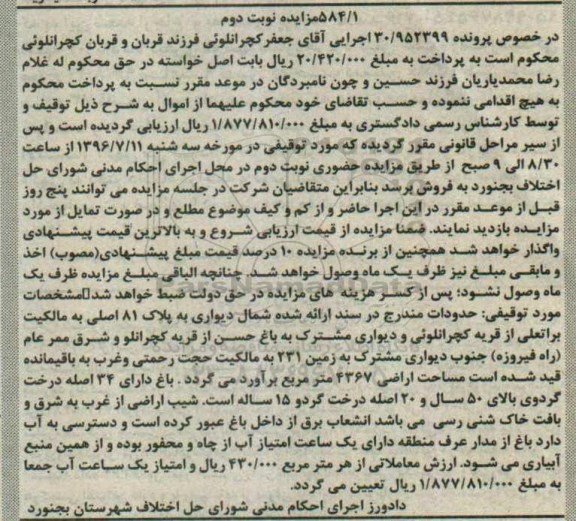 ۵۸۴/۱مزایده نوبت دوم
در خصوص پرونده ۳۰/۹۵۲۳۹۹اجرایی آقای جعفرکچرانلوئی فرزند قربان و قربان کچرانلوئی
محکوم است به پرداخت به مبلغ ۲۰/۴۲۰/۰۰۰ ریال بابت اصل خواسته در حق محکوم له غلام
رضا محمدیاریان فرزند حسین و چون نامبردگان در موعد مقرر نسبت به پرداخت محکوم
به هیچ اقدامی ننموده و حسب تقاضای خود محکوم علیهما از اموال به شرح ذیل توقیف و
توسط کارشناس رسمی دادگستری به مبلغ ۱/۸۷۷/۸۱۰/۰۰۰ ریال ارزیابی گردیده است و پس
از سیر مراحل قانونی مقرر گردیده که مورد توقیفی در مورخه سه شنبه ۱۳۹۶/۷/۱۱ از ساعت
۸/۳۰ الی ۹ صبح از طریق مزایده حضوری نوبت دوم در محل اجرای احکام مدنی شورای حل
اختلاف بجنورد به فروش برسد بنابراین متقاضیان شرکت در جلسه مزایده می توانند پنج روز
قبل از موعد مقرر در این اجرا حاضر و از کم و کیف موضوع مطلع و در صورت تمایل از مورد
مزایده بازدید نمایند. ضمنا مزایده از قیمت ارزیابی شروع و به بالاترین قیمت پیشنهادی
واگذار خواهد شد همچنین از برنده مزایده ۱۰ درصد قیمت مبلغ پیشنهادی(مصوب) اخذ
و مابقی مبلغ نیز ظرف یک ماه وصول خواهد شد. چنانچه الباقی مبلغ مزایده ظرف یک
ماه وصول نشود؛ پس از کسر هزینه های مزایده در حق دولت ضبط خواهد شد مشخصات
مورد توقیفی: حدودات مندرج در سند ارائه شده شمال دیواری به پلاک ۸۱ اصلی به مالکیت
براتعلی از قریه کچرانلوئی و دیواری مشترک به باغ حسن از قریه کچرانلو و شرق ممر عام
(راه فیروزه) جنوب دیواری مشترک به زمین ۲۳۱ به مالکیت حجت رحمتی وغرب به باقیمانده
قید شده است مساحت اراضی ۴۳۶۷ متر مربع برآورد می گردد . باغ دارای ۳۴ اصله درخت
گردوی بالای ۵۰ سال و ۲۰ اصله درخت گردو ۱۵ ساله است. شیب اراضی از غرب به شرق و
بافت خاک شنی رسی می باشد انشعاب برق از داخل باغ عبور کرده است و دسترسی به آب
دارد باغ از مدار عرف منطقه دارای یک ساعت امتیاز آب از چاه و محفور بوده و از همین منبع
آبیاری می شود. ارزش معاملاتی از هر متر مربع ۴۳۰/۰۰۰ ریال و امتیاز یک ساعت آب جمعا
به مبلغ ۱/۸۷۷/۸۱۰/۰۰۰ ریال تعیین می گردد.
دادورز اجرای احکام مدنی شورای حل اختلاف شهرستان بجنورد